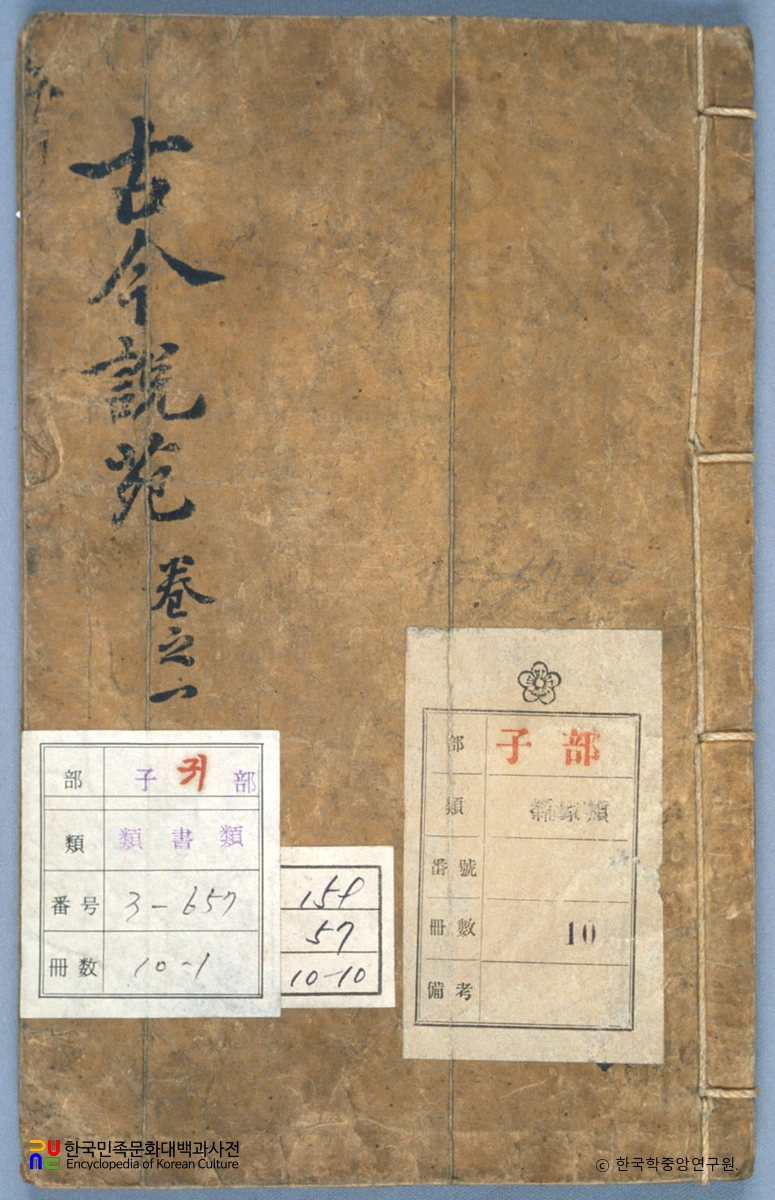 古今說苑 卷之一
部 子 귀 部
類 類書類
番号 3-657
冊数 10-1
57
10-10
部 子部
類
番號
冊數 10
備考
한국민족문화대백과사전
Encyclopedia of Korean Culture
© 한국학중앙연구원